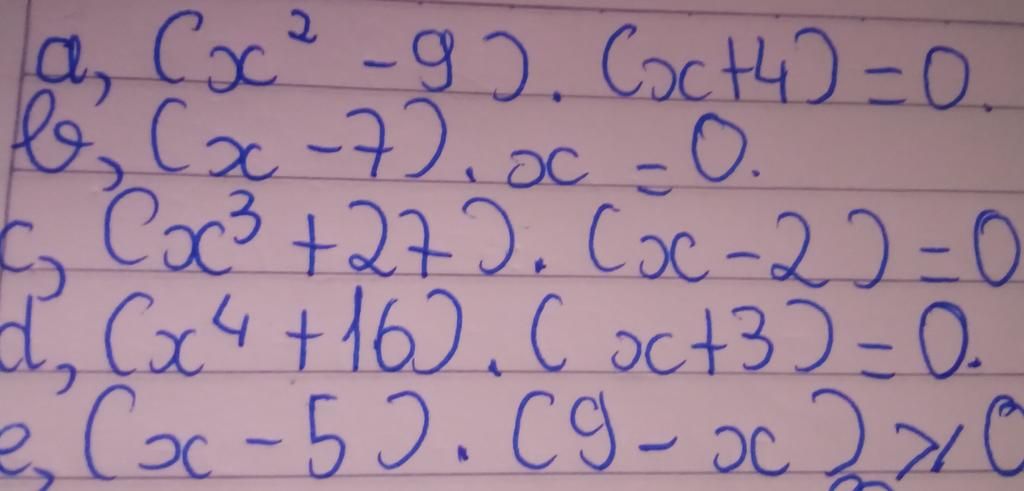 a, (x² - 9). (x+4) = 0.
b, (x - 7). x = 0.
c, (x³ + 27). (x - 2) = 0
d, (x⁴ + 16). (x+3) = 0.
e, (x - 5). (9 - x) ⩾ 0